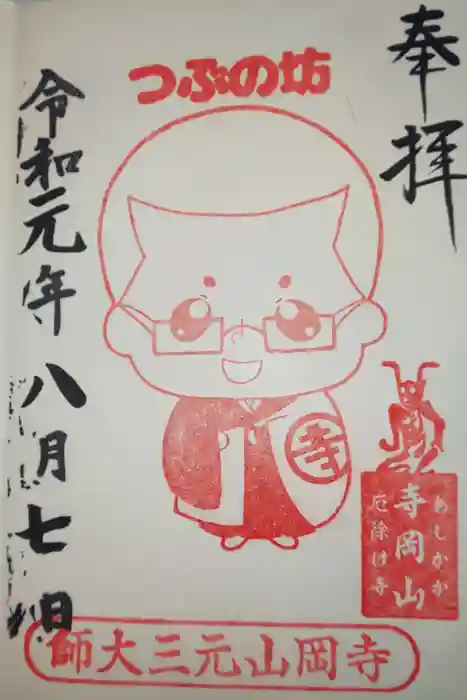 奉拝
つぶの坊
令和元年八月七日
寺
あしかが
寺岡山
厄除け寺
寺岡山元三大師